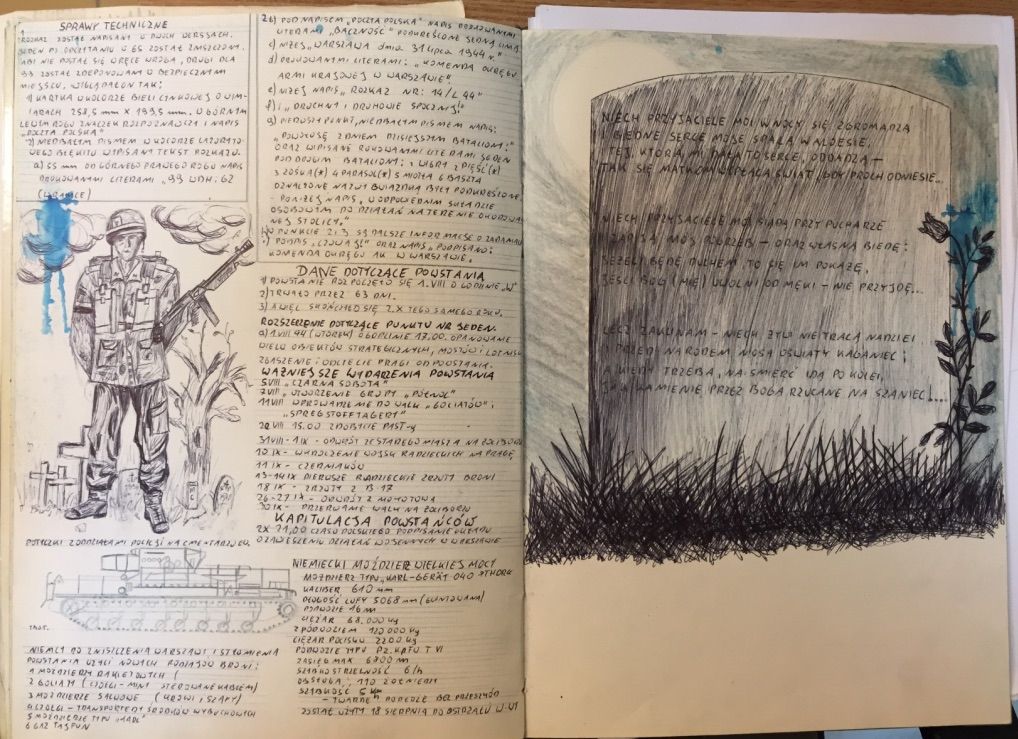 SPRAWY TECHNICZNE
ROZKAZ ZOSTAŁ NAPISANY W DWÓCH WERSJACH.
JEDEN PO ODCZYTANIU W GS ZOSTAŁ ZNISZCZONY,
ABY NIE DOSTAŁ SIĘ W RĘCE WROGA, DRUGI DLA
99 ZOSTAŁ ZDEPONOWANY W BEZPIECZNYM
MIEJSCU. WYGLĄDAŁ ON TAK:
1) KARTKA W KOLORZE BIELI CYNKOWEJ O WYM-
IARACH 258,5 mm X 199,5 mm. W GÓRNYM
LEWYM ROGU ZNACZEK ROZPOZNAWCZY I NAPIS
"POCZTA POLSKA"
2) NIEDBAŁYM PISMEM W KOLORZE LAZUROWE-
GO BŁĘKITU WYPISANY TEKST ROZKAZU.
a) 55 mm OD GÓRNEGO PRAWEGO ROGU NAPIS
DRUKOWANYMI LITERAMI "99 WDH. 62
DOTYCZKI Z ODDZIAŁAMI POLICJI NA CMENTARZU EW.
THOR.
NIEMCY DO ZNISZCZENIA WARSZAWY I STŁUMIENIA
POWSTANIA UŻYLI NOWYCH RODZAJÓW BRONI:
1 MOŹDZIERZY RAKIETOWYCH (
2 GOLIATY (CZOŁGI-MINY STEROWANE KABLEM)
3 MOŹDZIERZE SALWOWE (KROWY I SZAFY)
4 CZOŁGI-TRANSPORTERY ŚRODKÓW WYBUCHOWYCH
5 MOŹDZIERZE TYPU "KARL"
6 GAZ TAJFUN
2b) POD NAPISEM "POCZTA POLSKA" NAPIS DRUKOWANYMI
LITERAMI "BACZNOŚĆ" PODKREŚLONE JEDNĄ LINIĄ
c) NIŻEJ "WARSZAWA dnia 31 lipca 1944 r."
d) DRUKOWANYMI LITERAMI: "KOMENDA OKRĘGU
ARMI KRAJOWEJ W WARSZAWIE".
e) NIŻEJ NAPIS "ROZKAZ NR: 14/L 44"
f) I "DRUCHNY I DRUHOWIE SPOCZNIJ!"
g) PIERWSZY PUNKT, NIEDBAŁYM PISMEM NAPIS:
"POWOŁUJĘ Z DNIEM DZISIEJSZYM BATALIONY:"
ORAZ WYPISANE DRUKOWANYMI LITERAMI JEDEN
POD DRUGIM BATALIONY: 1 WIGRY 2 PIĘŚĆ(*)
3 ZOŚKA(*) 4 PARASOL(*) 5 MIOTŁA 6 BASZTA
OZNACZONE NAZWY GWIAZDKĄ BYŁY PODKREŚLONE
- PONIŻEJ NAPIS "W ODPOWIEDNIM SKŁADZIE
OSOBOWYM DO DZIAŁAŃ NA TERENIE OKUPOWA-
NEJ STOLICY."
h) W PUNKCIE 2 i 3 SĄ DALSZE INFORMACJE O ZADANIACH
i) PODPIS "CZUWAJ!" ORAZ NAPIS "PODPISANO:
KOMENDA OKRĘGU AK W WARSZAWIE.
DANE DOTYCZĄCE POWSTANIA
1) POWSTANIE ROZPOCZĘTO SIĘ 1.VIII O GODZINIE "W"
2) TRWAŁO PRZEZ 63 DNI.
3) A WIĘC SKOŃCZYŁO SIĘ 2.X TEGO SAMEGO ROKU.
ROZSZERZENIE DOTYCZĄCE PUNKTU NR JEDEN.
a) 1.VIII 44 (WTOREK) O GODZINIE 17,00. OPANOWANIE
WIELU OBIEKTÓW STRATEGICZNYCH, MOSTÓW I LOTNISK
ZGASZENIE I ODCIĘCIE PRAGI OD POWSTANIA.
WAŻNIEJSZE WYDARZENIA POWSTANIA
5 VIII "CZARNA SOBOTA"
7 VIII "UTWORZENIE GRUPY "PÓŁNOC"
11 VIII WPROWADZENIE DO WALK "GOLIATÓW",
"SPREGSTOFFTAGERT"
20 VIII 15.00 ZDOBYCIE PAST-y
31 VIII-1 IX - ODWRÓT ZE STAREGO MIASTA NA ŻOLIBORZ
10 IX - WKROCZENIE WOJSK RADZIECKICH NA PRAGĘ
11 IX - CZERNIAKÓW
13-14 IX PIERWSZE RADZIECKIE ZRZUTY BRONI
18 IX - ZRZUTY Z B 17
26-27 IX - ODWRÓT Z MOKOTOWA
30 IX - PRZERWANIE WALK NA ŻOLIBORZU
KAPITULACJA POWSTAŃCÓW
2 X 21,00 CZASU POLSKIEGO PODPISANIE UKŁADU
O ZAWIESZENIU DZIAŁAŃ WOJENNYCH W WARSZAWIE
NIEMIECKI MOŹDZIERZ WIELKIEJ MOCY
MOŹDZIERZ TYPU "KARL-GERÄT 040 "THOR"
KALIBER 610 mm
DŁUGOŚĆ LUFY 5068 mm (GWINTOWANA)
CIĘŻAR 68,000 kg
Z PODWOZIEM 120 000 kg
CIĘŻAR POCISKU 2200 kg
PODWOZIE TYPU PZ.KPFW T VI
ZASIĘG MAX 6800 m
SZYBKOSTRZELNOŚĆ 6/h
OBSŁUGA: 110 ŻOŁNIERZY
SZYBKOŚĆ 5 km/h
- TWARDE PODŁOŻE BEZ PRZESZKÓD
ZOSTAŁ UŻYTY 18 SIERPNIA DO OSTRZAŁU W-WY
NIECH PRZYJACIELE MOI W NOCY SIĘ ZGROMADZĄ
I BIEDNE SERCE MOJE SPALĄ W ALOESIE,
I TEJ, KTÓRA MI DAŁA TO SERCE, ODDADZĄ -
TAK SIĘ MATKOM WYPŁACA ŚWIAT, GDY PROCH ODNIESIE...
NIECH PRZYJACIELE MOI SIĄDĄ PRZY PUCHARZE
ZAPIJĄ MÓJ POGRZEB - ORAZ WŁASNĄ BIEDĘ:
JEŻELI BĘDĘ DUCHEM, TO SIĘ IM POKAŻĘ,
JEŚLI BÓG [MIĘ] UWOLNI OD MĘKI - NIE PRZYJDĘ...
LECZ ZAKLINAM - NIECH ŻYWI NIE TRACĄ NADZIEI
I PRZED NARODEM NIOSĄ OŚWIATY KAGANIEC;
A KIEDY TRZEBA, NA ŚMIERĆ IDĄ PO KOLEI,
JAK KAMIENIE PRZEZ BOGA RZUCANE NA SZANIEC!...